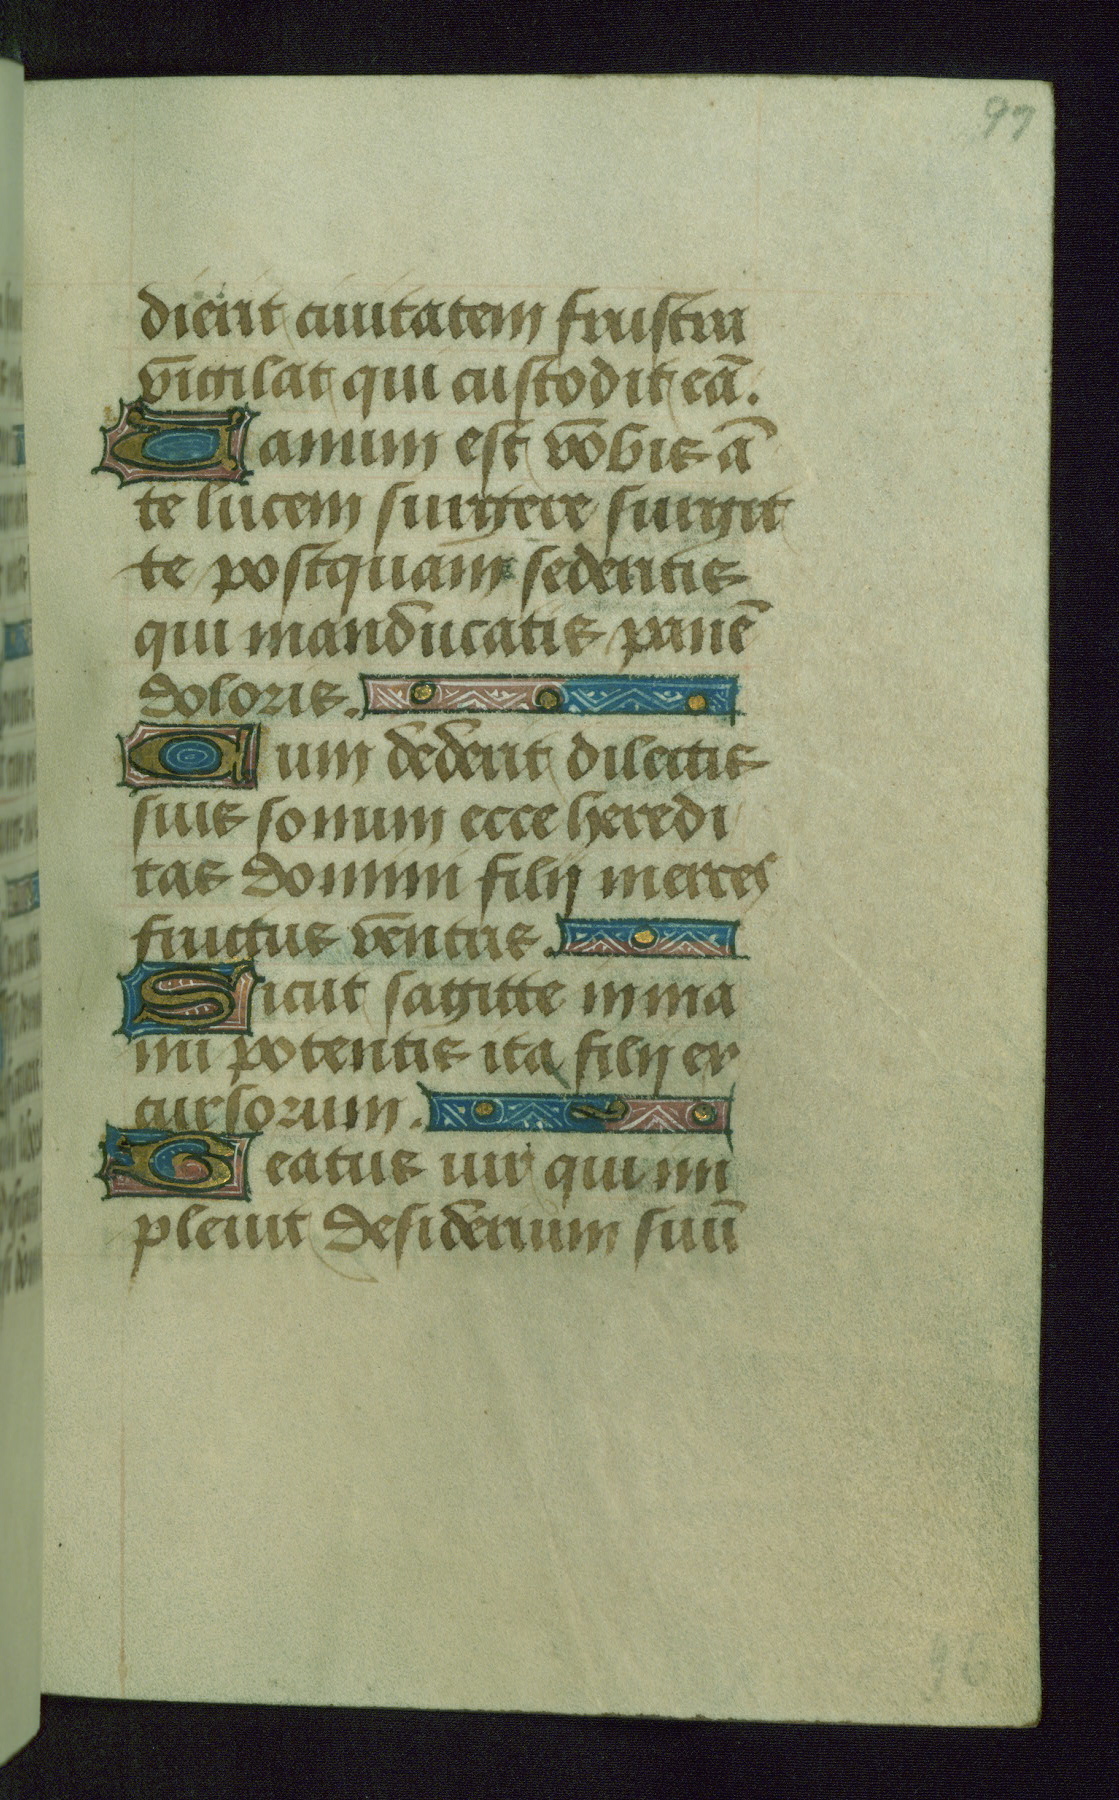 97
dierit ciuitatem frustra
vigilat qui custodit eā.
Vanum est vobis ā
te lucem surgere surgit
te postquam sederitis
qui manducatis panē
doloris.
Cum dederit dilectis
suis somnum ecce heredi
tas domini filij merces
fructus ventris.
Sicut sagitte in ma
nu potentis ita filij ex
cussorum.
Beatus uir qui im
pleuit desiderium suū
96